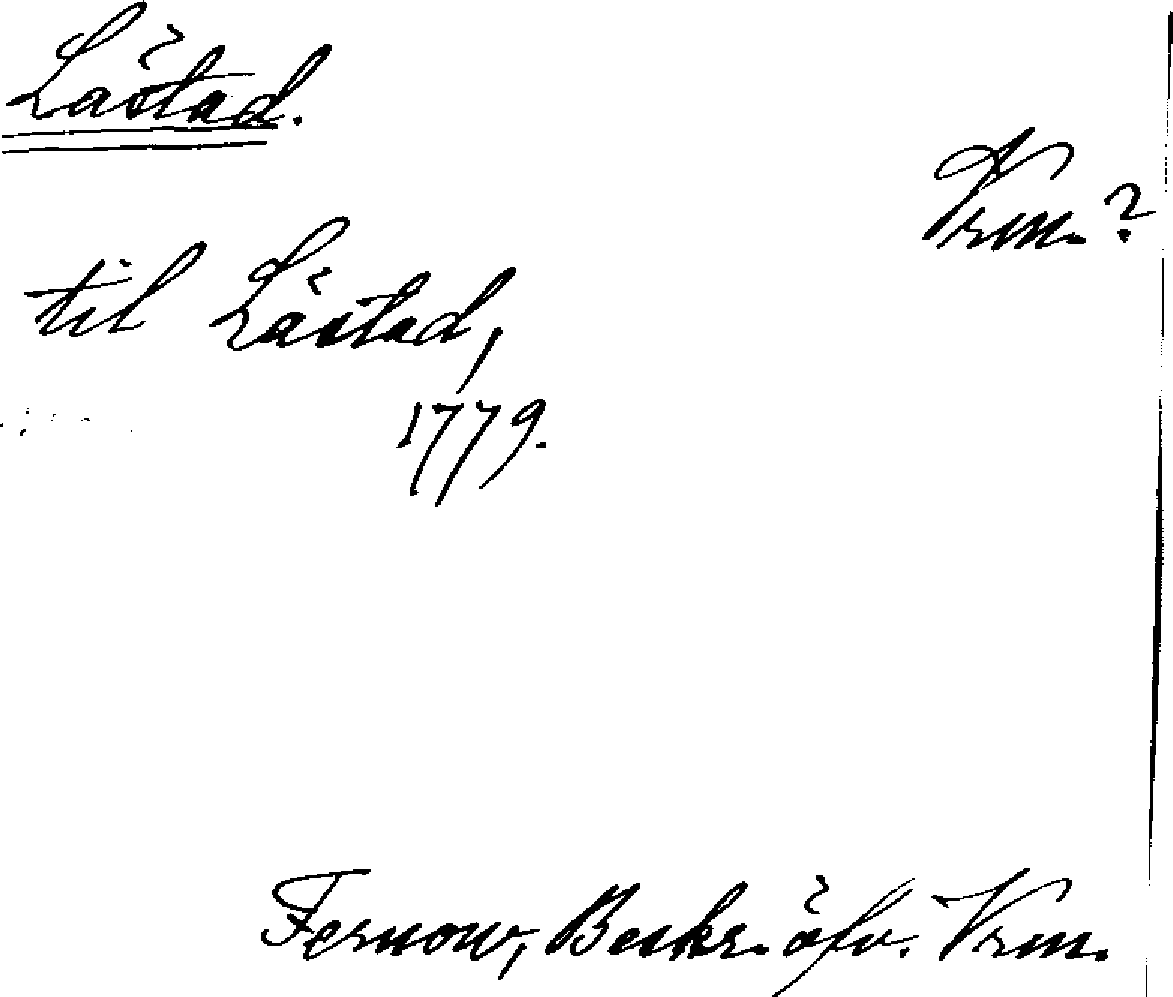 Lästad.
Vrm.?
til Lästad,
1779.
Fernow, Beskr. öfv. Vrm.